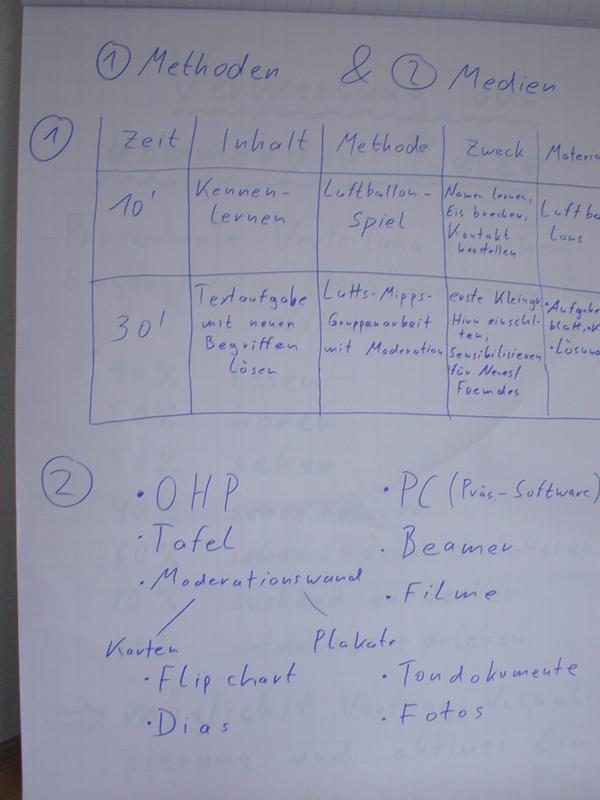 ① Methoden & ② Medien
①
Zeit Inhalt Methode Zweck Materia
10' Kennen-
lernen
Luftballon-
Spiel
Namen lernen,
Eis brechen,
Kontakt
herstellen
Luftba
lons
30' Textaufgabe
mit neuen
Begriffen
lösen
Lutts-Mipps-
Gruppenarbeit
mit Moderation
erste Kleingr.
Hirn einschal-
ten,
Sensibilisieren
für Neues/
Fremdes
• Aufgabe
blatt
• Lösun
②
• OHP
• Tafel
• Moderationswand
Karten Plakate
• Flip chart
• Dias
• PC (Präs.-Software)
• Beamer
• Filme
• Tondokumente
• Fotos